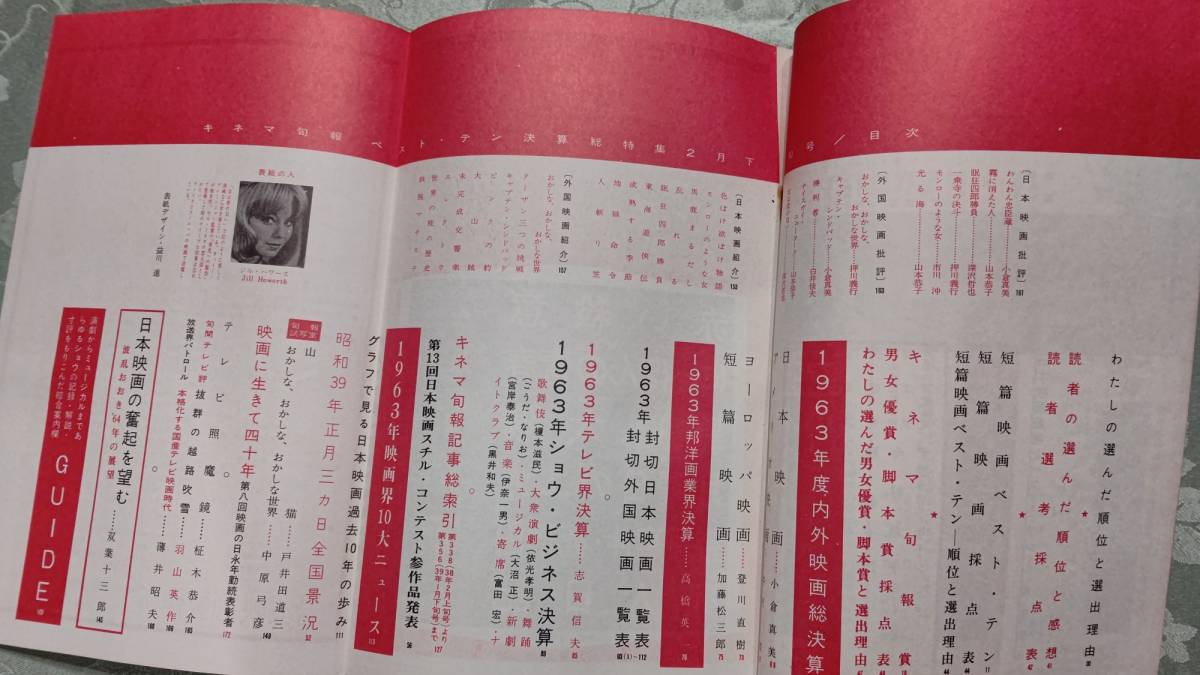 キネマ旬報ベスト・テン決算総特集2月下
号/目次
わたしの選んだ順位と選出理由
★
読者の選んだ順位と感想
読者選考採点表
★
短篇映画ベスト・テン
短篇映画採点表
短篇映画ベスト・テン―順位と選出理由
★
キネマ旬報賞
男女優賞・脚本賞採点表
わたしの選んだ男女優賞・脚本賞と選出理由
1963年度内外映画総決算
〔日本映画批評〕161
わんわん忠臣蔵……小倉真美
霧に消えた人……山本恭子
眠狂四郎勝負……深沢哲也
一乗寺の決斗……押川義行
モンローのような女……市川 沖
光る海……山本恭子
〔外国映画批評〕163
おかしな、おかしな、
おかしな世界……押川義行
キャプテン・
シンドバッド……小倉真美
勝利者……白井佳夫
日本映画……小倉真美
ヨーロッパ映画……登川直樹 73
短篇映画……加藤松三郎 75
1963年邦洋画業界決算……高橋英一 76
1963年 封切日本映画一覧表
封切外国映画一覧表
〔日本映画紹介〕153
色ぼけ欲ぼけ物語
モンローのような女
馬鹿まるだし
乱れる
眠狂四郎勝負
東海遊侠伝
成熟する季節
地獄命令
人斬り笠
〔外国映画紹介〕157
おかしな、おかしな、
おかしな世界
ターザン三つの挑戦
キャプテン・シンドバッド
ピンクの豹
大山賊
未完成交響楽
エレクトラ
世界の屋根の歴史
鉄腕マチステ
1963年テレビ界決算……志賀信夫 85
1963年ショウ・ビジネス決算 89
歌舞伎(榎本滋民)・大衆演劇(依光孝明)・舞踊
(こうだ・なりお)・ミュージカル(大沼正)・新劇
(宮岸泰治)・音楽(伊奈一男)・寄席(富田 宏)・ナ
イトクラブ(黒井和夫)
キネマ旬報記事総索引 第338(38年2月上旬号)より
第356(39年1月下旬号)まで 127
第13回日本映画スチル・コンテスト参加作品発表 56
1963年映画界10大ニュース 113
グラフで見る日本映画過去10年の歩み 111
昭和39年正月三カ日全国景況 52
旬報試写室
山猫……戸井田道三
おかしな、おかしな、おかしな世界……中原弓彦 149
映画に生きて四十年 第八回映画の日永年勤続表彰者 172
テレビ照魔鏡……柾木恭介 165
旬間テレビ評 抜群の越路吹雪……羽山英作 166
放送界パトロール 本格化する国産テレビ映画時代……薄井昭夫 168
日本映画の奮起を望む……双葉十三郎 146
波乱おおき'64年の展望
演劇からミュージカルまであ
らゆるショウの記録・解説・
寸評をもりこんだ綜合案内欄
GUIDE
表紙の人
ジル・ハワース
Jill Haworth
表紙デザイン・益川 進